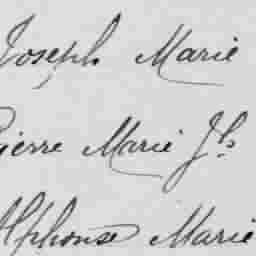 Joseph Marie
Pierre Marie Jh
Alphonse Marie